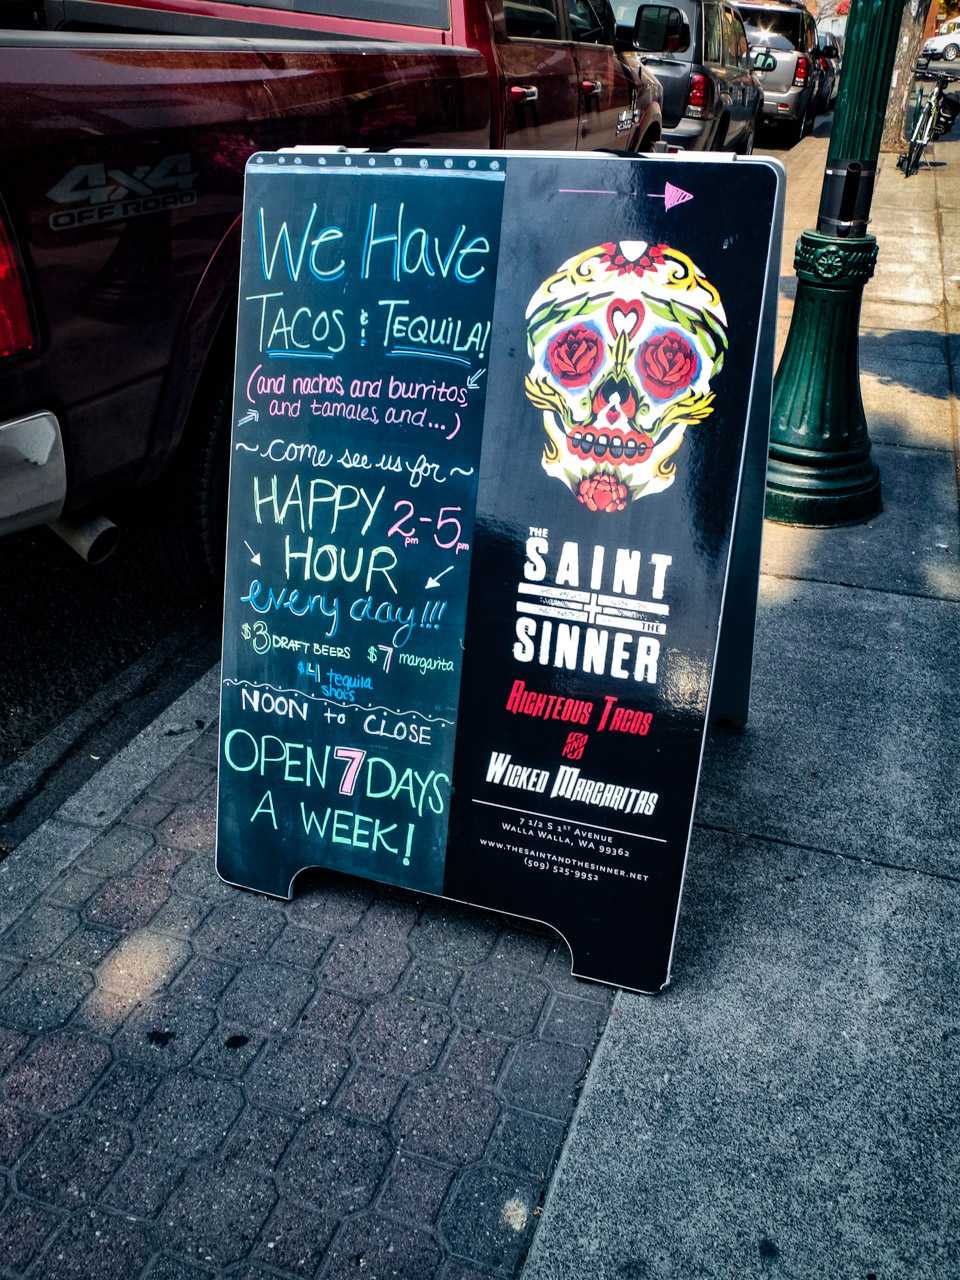 4x4
OFF ROAD
We Have
TACOS & TEQUILA!
(and nachos, and burritos,
and tamales, and...)
~ come see us for ~
HAPPY 2pm-5pm
HOUR
every day!!!
$3 DRAFT BEERS $7 margarita
$4 tequila
shots
NOON to CLOSE
OPEN 7 DAYS
A WEEK!
THE
SAINT
+
THE
SINNER
RIGHTEOUS TACOS
AND
WICKED MARGARITAS
7 1/2 S 1ST AVENUE
WALLA WALLA, WA 99362
WWW.THESAINTANDTHESINNER.NET
(509) 525-9952